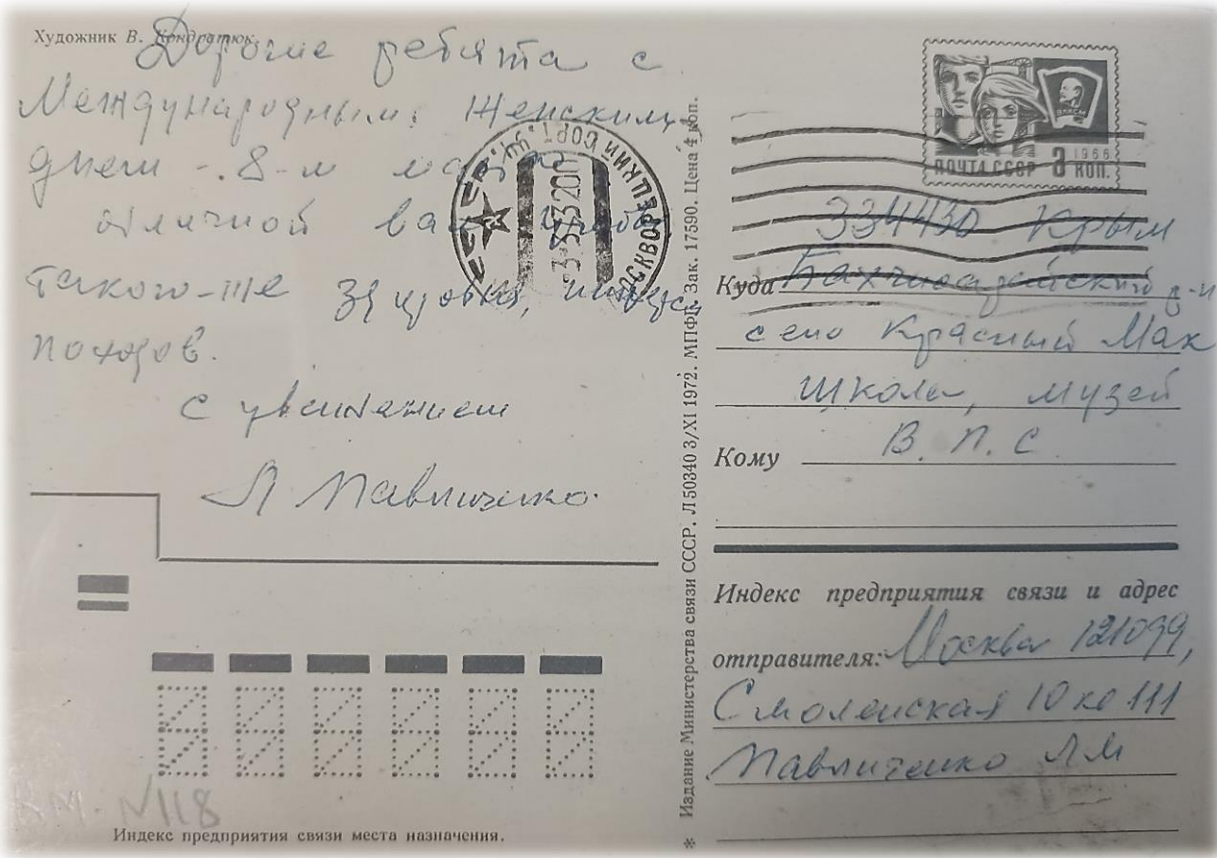 Художник В. Кондратюк
Дорогие ребята с
Международным Женским
днем - 8-м марта
отличной вам учебы
такого-же здоровья,
походов.
с уважением
Л Павличенко.
Индекс предприятия связи места назначения.
* Издание Министерства связи СССР. Л 50340 3/XI 1972. МПФГ. Зак. 17590. Цена 4 коп.
МОСКВОРЕЦКИЙ СОРТ.
ПОЧТА СССР
1966
334430 Крым
Куда Бахчисарайский р-н
село Красный Мак
Школа, музей
Кому В. П. С
Индекс предприятия связи и адрес
отправителя: Москва 121099,
Смоленская 10 кв 111
Павличенко ЛМ